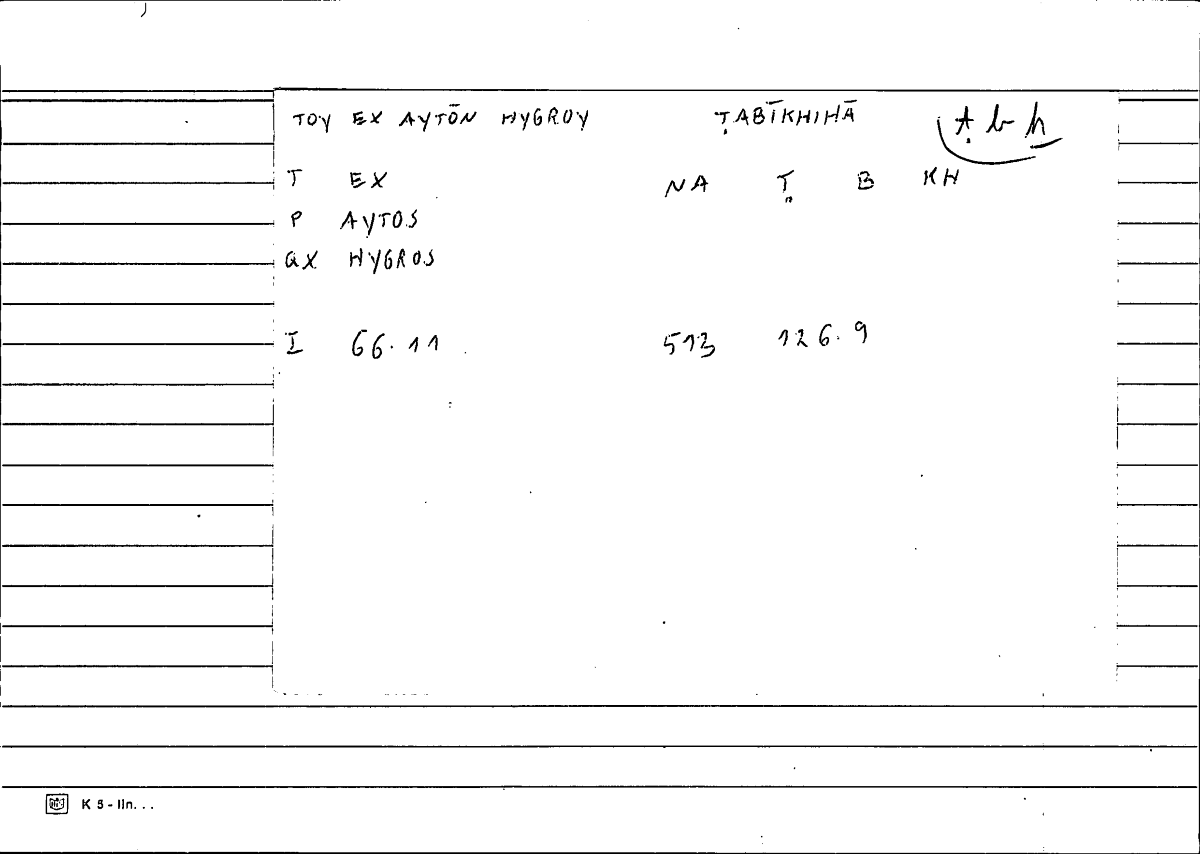 TOY EX AYTŌN HYGROY ṬABĪKHIHĀ ṭbḫ
T EX NA Ṭ B KH
P AYTOS
QX HYGROS
I 66.11 513 126.9
K 5 - lin...